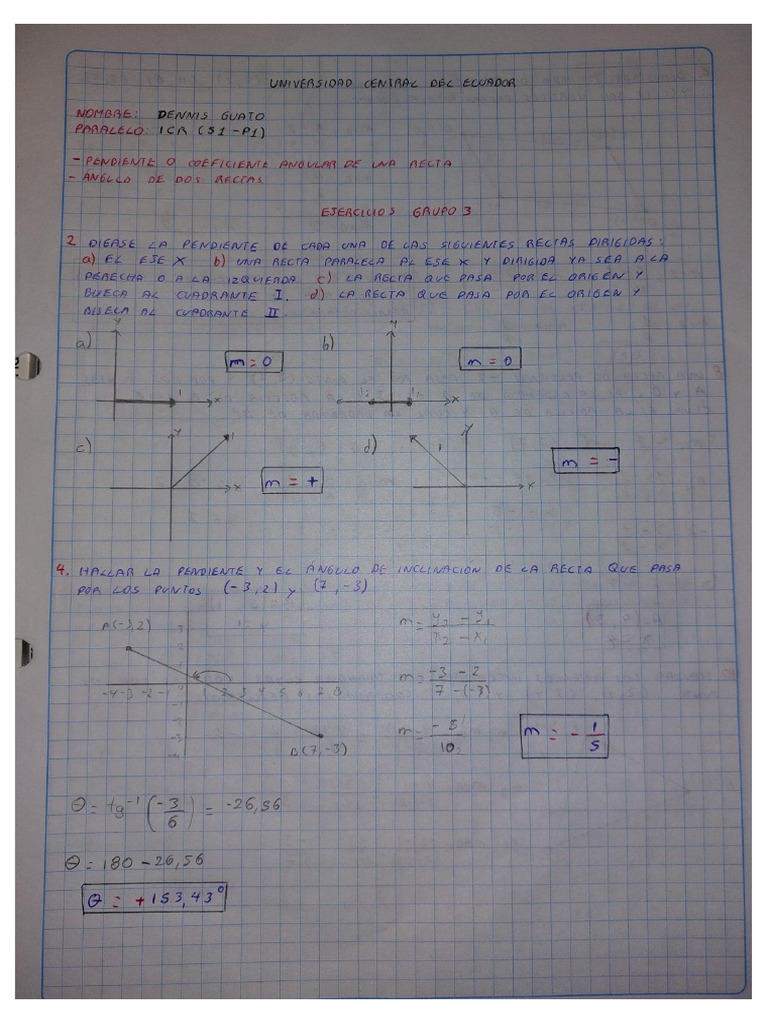 UNIVERSIDAD CENTRAL DEL ECUADOR
NOMBRE: DENNIS GUATO
PARALELO: ICR (S1-P1)
- PENDIENTE O COEFICIENTE ANGULAR DE UNA RECTA
- ÁNGULO DE DOS RECTAS
EJERCICIOS GRUPO 3
2 DIGASE LA PENDIENTE DE CADA UNA DE LAS SIGUIENTES RECTAS DIRIGIDAS:
a) EL EJE X b) UNA RECTA PARALELA AL EJE X Y DIRIGIDA YA SEA A LA
DERECHA O A LA IZQUIERDA c) LA RECTA QUE PASA POR EL ORIGEN Y
BISECA AL CUADRANTE I. d) LA RECTA QUE PASA POR EL ORIGEN Y
BISECA AL CUADRANTE II
a) Y m = 0 X
b) Y m = 0 X
c) Y m = + X
d) Y m = - X
4. HALLAR LA PENDIENTE Y EL ÁNGULO DE INCLINACION DE LA RECTA QUE PASA
POR LOS PUNTOS (-3,2) Y (7,-3)
A(-3,2)
3
2
1
-4 -3 -2 -1 0 1 2 3 4 5 6 7 8
-1
-2
-3
-4
B(7,-3)
m = y2 - y1 / x2 - x1
m = -3 - 2 / 7 - (-3)
m = -5 / 10
m = - 1/5
θ = tg⁻¹ (-3/6) = -26,56
θ = 180 - 26,56
θ = + 153,43°